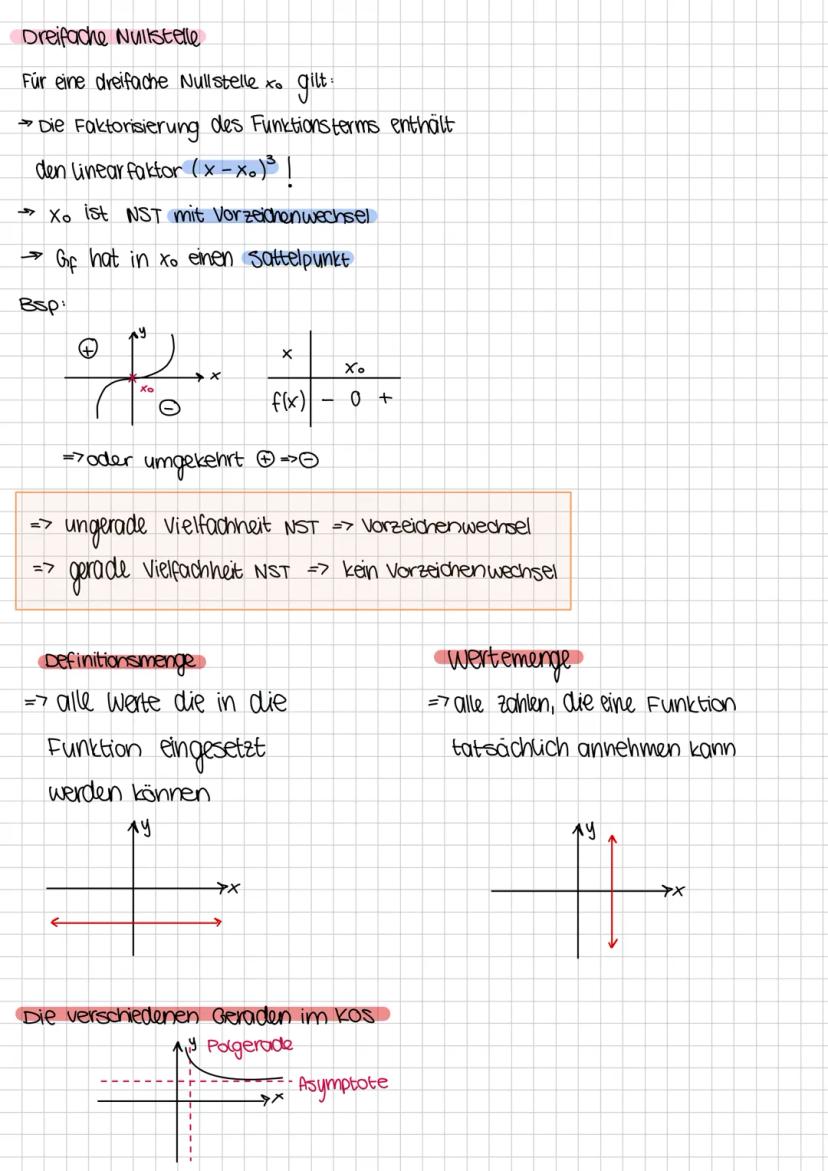 Dreifache Nullstelle
Für eine dreifache Nullstelle x₀ gilt:
→ Die Faktorisierung des Funktionsterms enthält
den linearfaktor (x - x₀)³ !
→ x₀ ist NST mit Vorzeichenwechsel
→ Gf hat in x₀ einen Sattelpunkt
Bsp:
⊕ y
x
x₀
⊖
x x₀
f(x) - 0 +
=> oder umgekehrt ⊕ => ⊖
=> ungerade Vielfachheit NST => Vorzeichenwechsel
=> gerade Vielfachheit NST => kein Vorzeichenwechsel
Definitionsmenge
=> alle Werte die in die
Funktion eingesetzt
werden können
y
x
Wertemenge
=> alle zahlen, die eine Funktion
tatsächlich annehmen kann
y
x
Die verschiedenen Geraden im KOS
y Polgerade
Asymptote
x